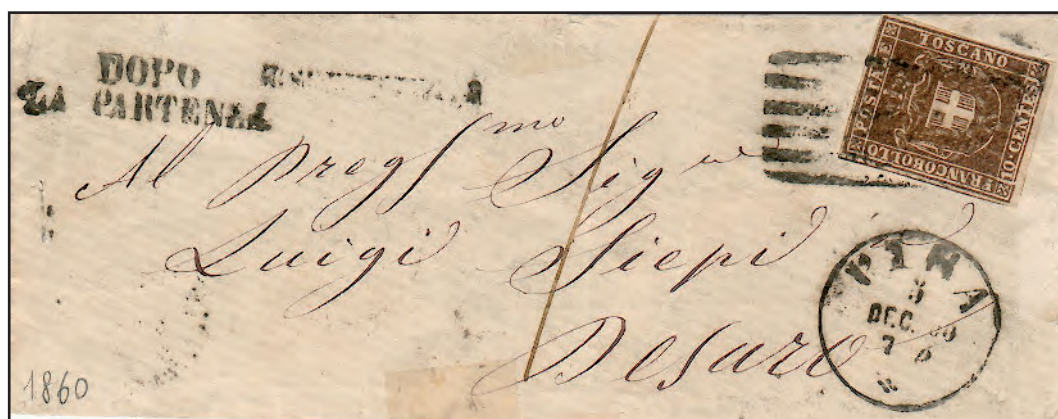 DOPO
LA PARTENZA
FRANCOBOLLO POSTALE TOSCANO 10 CENTES
Al Pregmo Sigre
Luigi Siepi
Pesaro
PISA
3
DEC. 60
7
1860